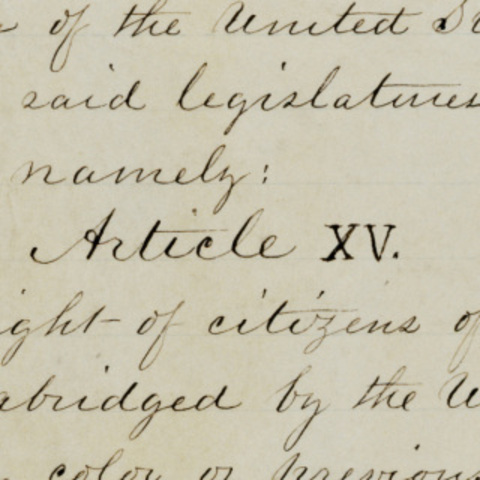 of the United St
said legislatures
namely:
Article XV.
ight of citizens of
abridged by the U
color or previous